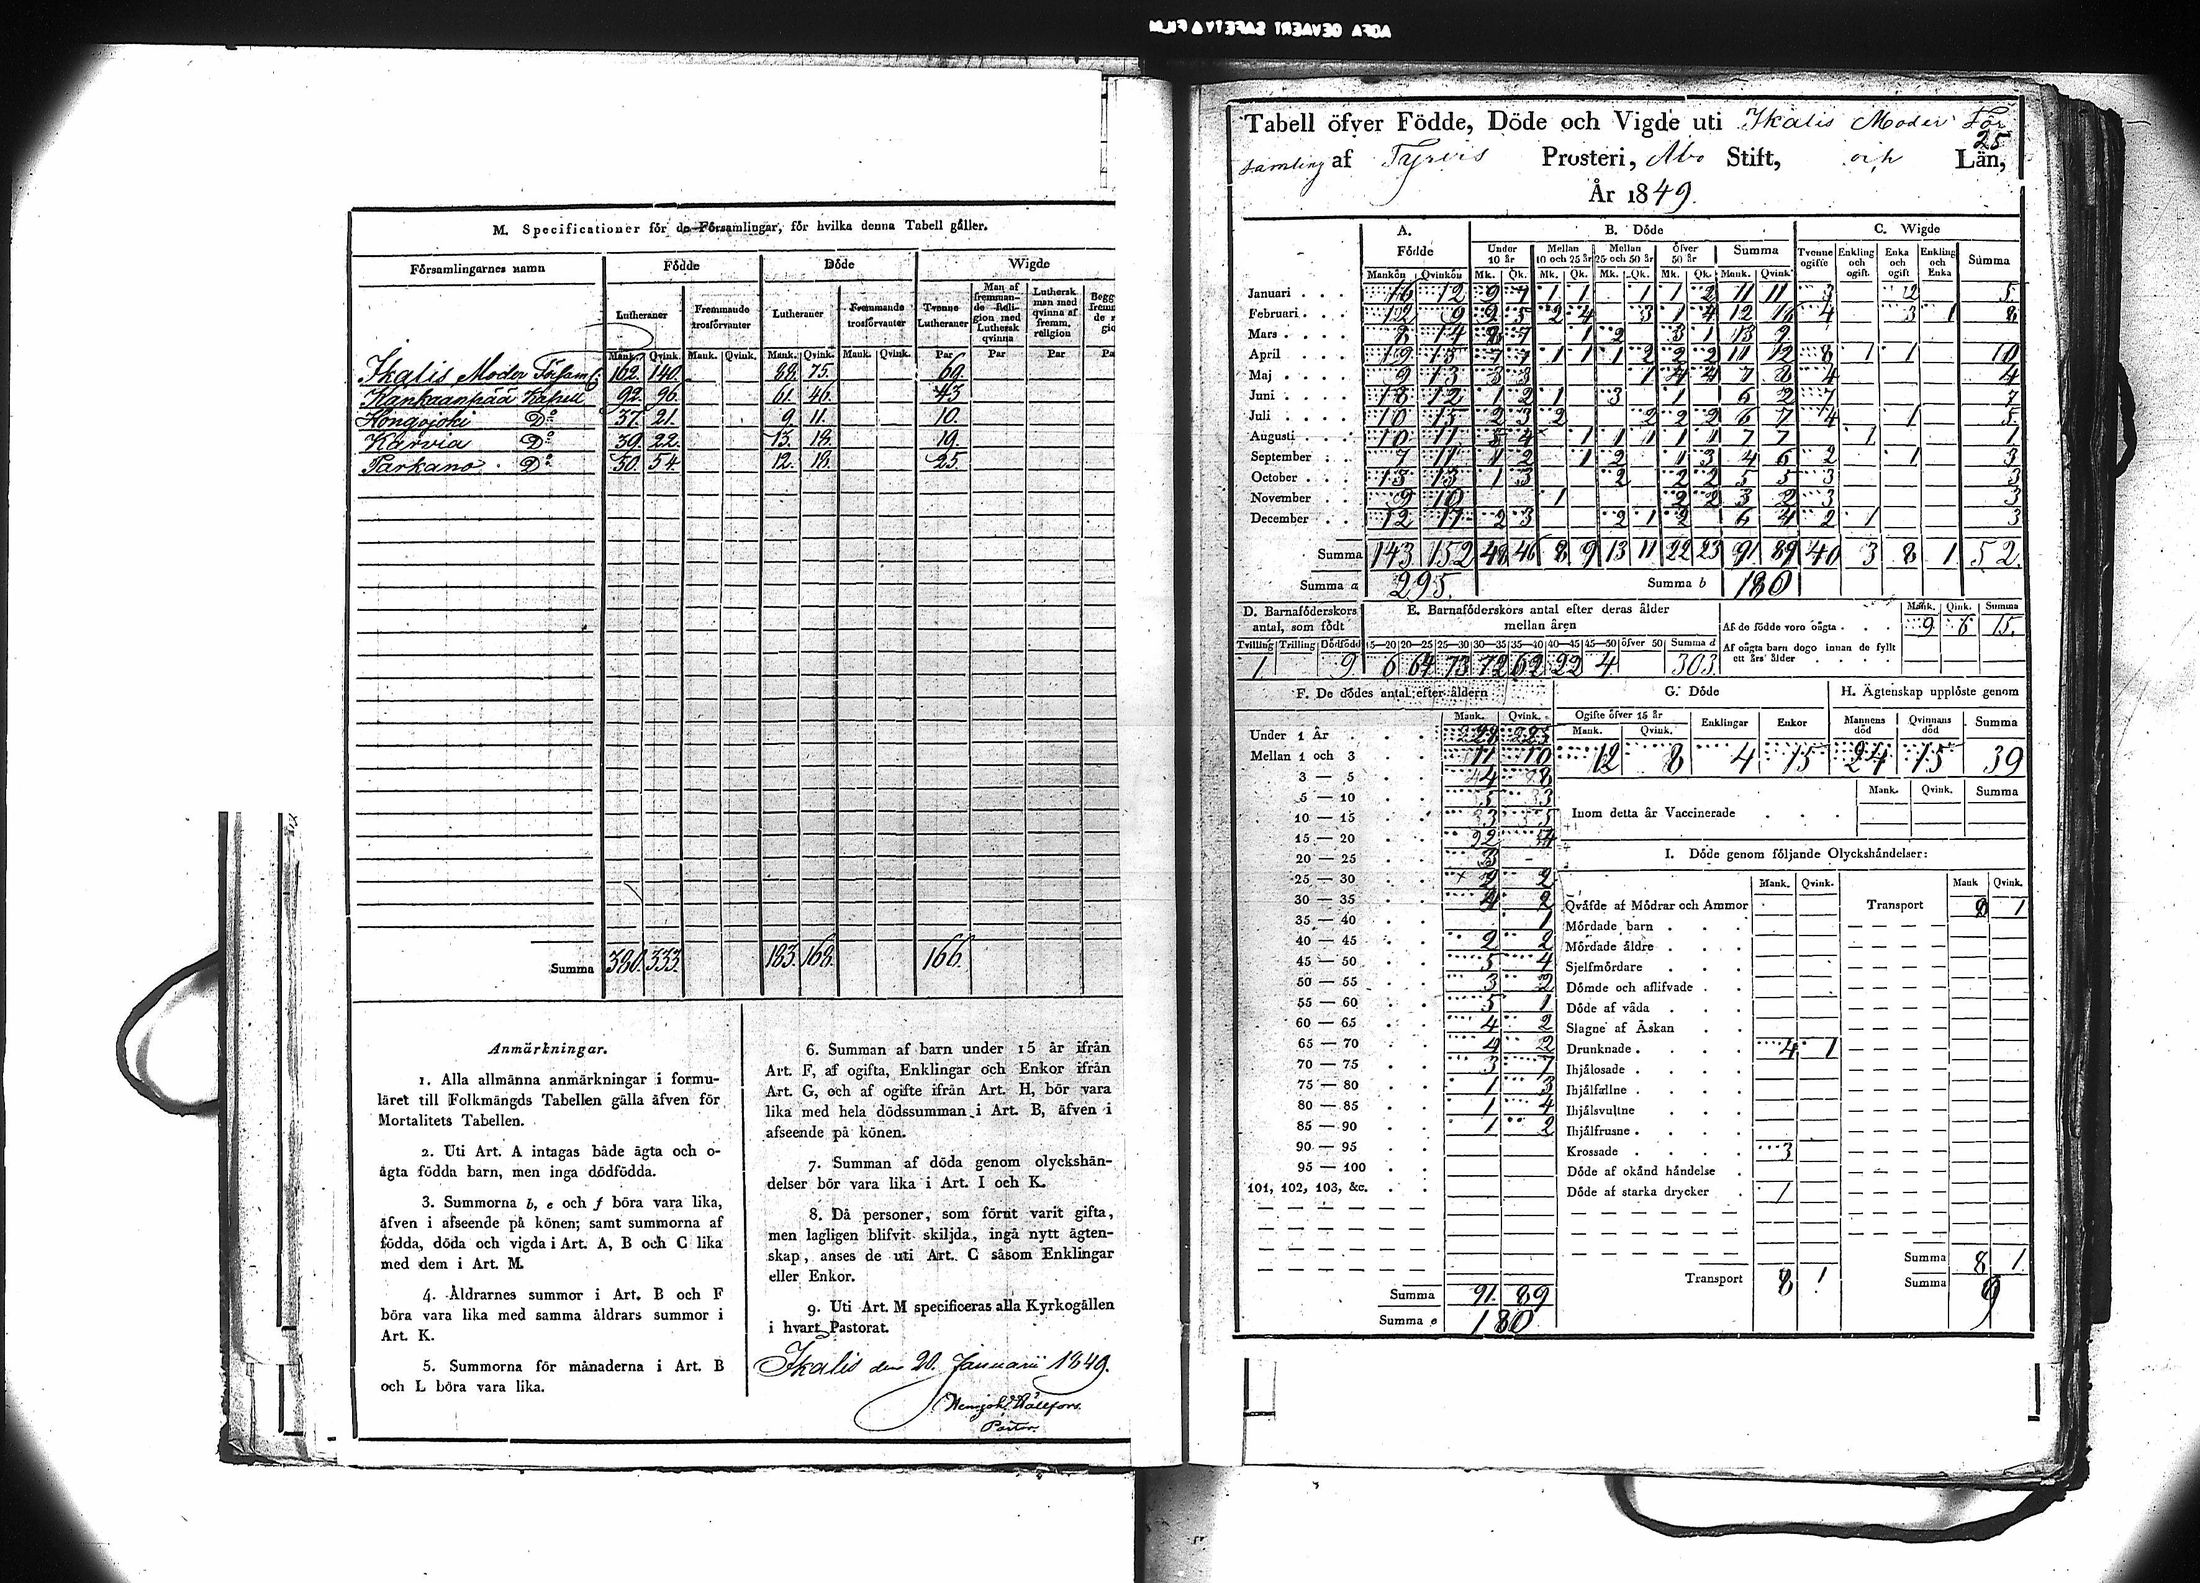 M. Specificationer för de Församlingar, för hvilka denna Tabell gäller.
Församlingarnes namn Födde Döde Wigde
Lutheraner Fremmande trosförvanter Lutheraner Fremmande trosförvanter Tvenne Lutheraner Man af fremmande Religion med Luthersk qvinna Luthersk man med qvinna af fremm. religion
Mank. Qvink. Mank. Qvink. Mank. Qvink. Mank. Qvink. Par Par Par
Ikalis Moder Församl 162. 140. 88. 75. 69.
Kankaanpää Kapell 92. 96. 61. 46. 43
Hongojoki Do 37. 21. 9. 11. 10.
Karvia Do 39. 22. 13. 18. 19.
Parkano Do 50. 54. 12. 18. 25.
Summa 380. 333. 183. 168. 166.
Anmärkningar.
1. Alla allmänna anmärkningar i formu-
läret till Folkmängds Tabellen gälla äfven för
Mortalitets Tabellen.
2. Uti Art. A intagas både ägta och o-
ägta födda barn, men inga dödfödda.
3. Summorna b, e och f böra vara lika,
äfven i afseende på könen; samt summorna af
födda, döda och vigda i Art. A, B och C lika
med dem i Art. M.
4. Åldrarnes summor i Art. B och F
böra vara lika med samma åldrars summor i
Art. K.
5. Summorna för månaderna i Art. B
och L böra vara lika.
6. Summan af barn under 15 år ifrån
Art. F, af ogifta, Enklingar och Enkor ifrån
Art. G, och af ogifte ifrån Art. H, bör vara
lika med hela dödssumman i Art. B, äfven i
afseende på könen.
7. Summan af döda genom olyckshän-
delser bör vara lika i Art. I och K.
8. Då personer, som förut varit gifta,
men lagligen blifvit skiljda, ingå nytt ägten-
skap, anses de uti Art. C såsom Enklingar
eller Enkor.
9. Uti Art. M specificeras alla Kyrkogällen
i hvart Pastorat.
Ikalis den 20. Januarii 1849.
Pastor.
Tabell öfver Födde, Döde och Vigde uti Ikalis Moder För
25
samling af Tyrvis Prosteri, Abo Stift, och Län,
År 1849.
A. Födde B. Döde C. Wigde
Under 10 år Mellan 10 och 25 år Mellan 25 och 50 år Öfver 50 år Summa Tvenne ogifte Enkling och ogift. Enka och ogift Enkling och Enka Summa
Mankön Qvinkön Mk. Qk. Mk. Qk. Mk. Qk. Mk. Qk. Mank. Qvink
Januari 16 12 9 7 1 1 1 1 2 11 11 3 2 5
Februari 12 9 9 5 2 4 3 1 4 12 16 4 3 1 8
Mars 8 14 8 7 1 2 3 1 13 9
April 19 15 7 7 1 1 1 2 2 2 11 12 8 1 1 10
Maj 9 13 3 3 1 4 4 7 8 4 4
Juni 18 12 1 2 1 3 1 6 2 7 7
Juli 10 15 2 3 2 2 2 2 6 7 4 1 5
Augusti 10 11 5 4 1 1 1 1 1 7 7 1 1
September 7 11 1 2 1 2 1 3 4 6 2 1 3
October 13 13 1 3 2 2 2 5 5 3 3
November 9 10 1 2 2 3 2 3 3
December 12 17 2 3 2 1 2 6 4 2 1 3
Summa 143 152 48 46 8 9 13 11 22 23 91 89 40 3 8 1 52.
Summa a 295. Summa b 180
D. Barnaföderskors antal, som födt
Tvilling Trilling Dödfödd
1 9
E. Barnaföderskors antal efter deras ålder mellan åren
15—20 20—25 25—30 30—35 35—40 40—45 45—50 öfver 50 Summa d
6 64 73 72 62 22 4 303
Mank. Qink. Summa
Af de födde voro oägta 9 6 15.
Af oägta barn dogo innan de fyllt ett års ålder
F. De dödes antal efter åldern
Mank. Qvink.
Under 1 År 28 25
Mellan 1 och 3 11 10
3 — 5 4 8
5 — 10 5 3
10 — 15 3 5
15 — 20 2 4
20 — 25 3 -
25 — 30 2 2
30 — 35 4 2
35 — 40 1
40 — 45 2 2
45 — 50 5 4
50 — 55 3 2
55 — 60 5 1
60 — 65 4 2
65 — 70 4 2
70 — 75 3 7
75 — 80 1 3
80 — 85 1 4
85 — 90 1 2
90 — 95
95 — 100
101, 102, 103, &c.
Summa 91. 89
Summa e 180
G. Döde
Ogifte öfver 15 år Enklingar Enkor
Mank. Qvink.
12 8 4 15
H. Ägtenskap upplöste genom
Mannens död Qvinnans död Summa
24 15 39
Mank. Qvink. Summa
Inom detta år Vaccinerade
I. Döde genom följande Olyckshändelser:
Mank. Qvink. Mank Qvink.
Qväfde af Mödrar och Ammor Transport 8 1
Mördade barn
Mördade äldre
Sjelfmördare
Dömde och aflifvade
Döde af våda
Slagne af Åskan
Drunknade 4 1
Ihjälosade
Ihjälfallne
Ihjälsvultne
Ihjälfrusne
Krossade 3
Döde af okänd händelse
Döde af starka drycker 1
Summa 8 1
Transport 8 1 Summa 9